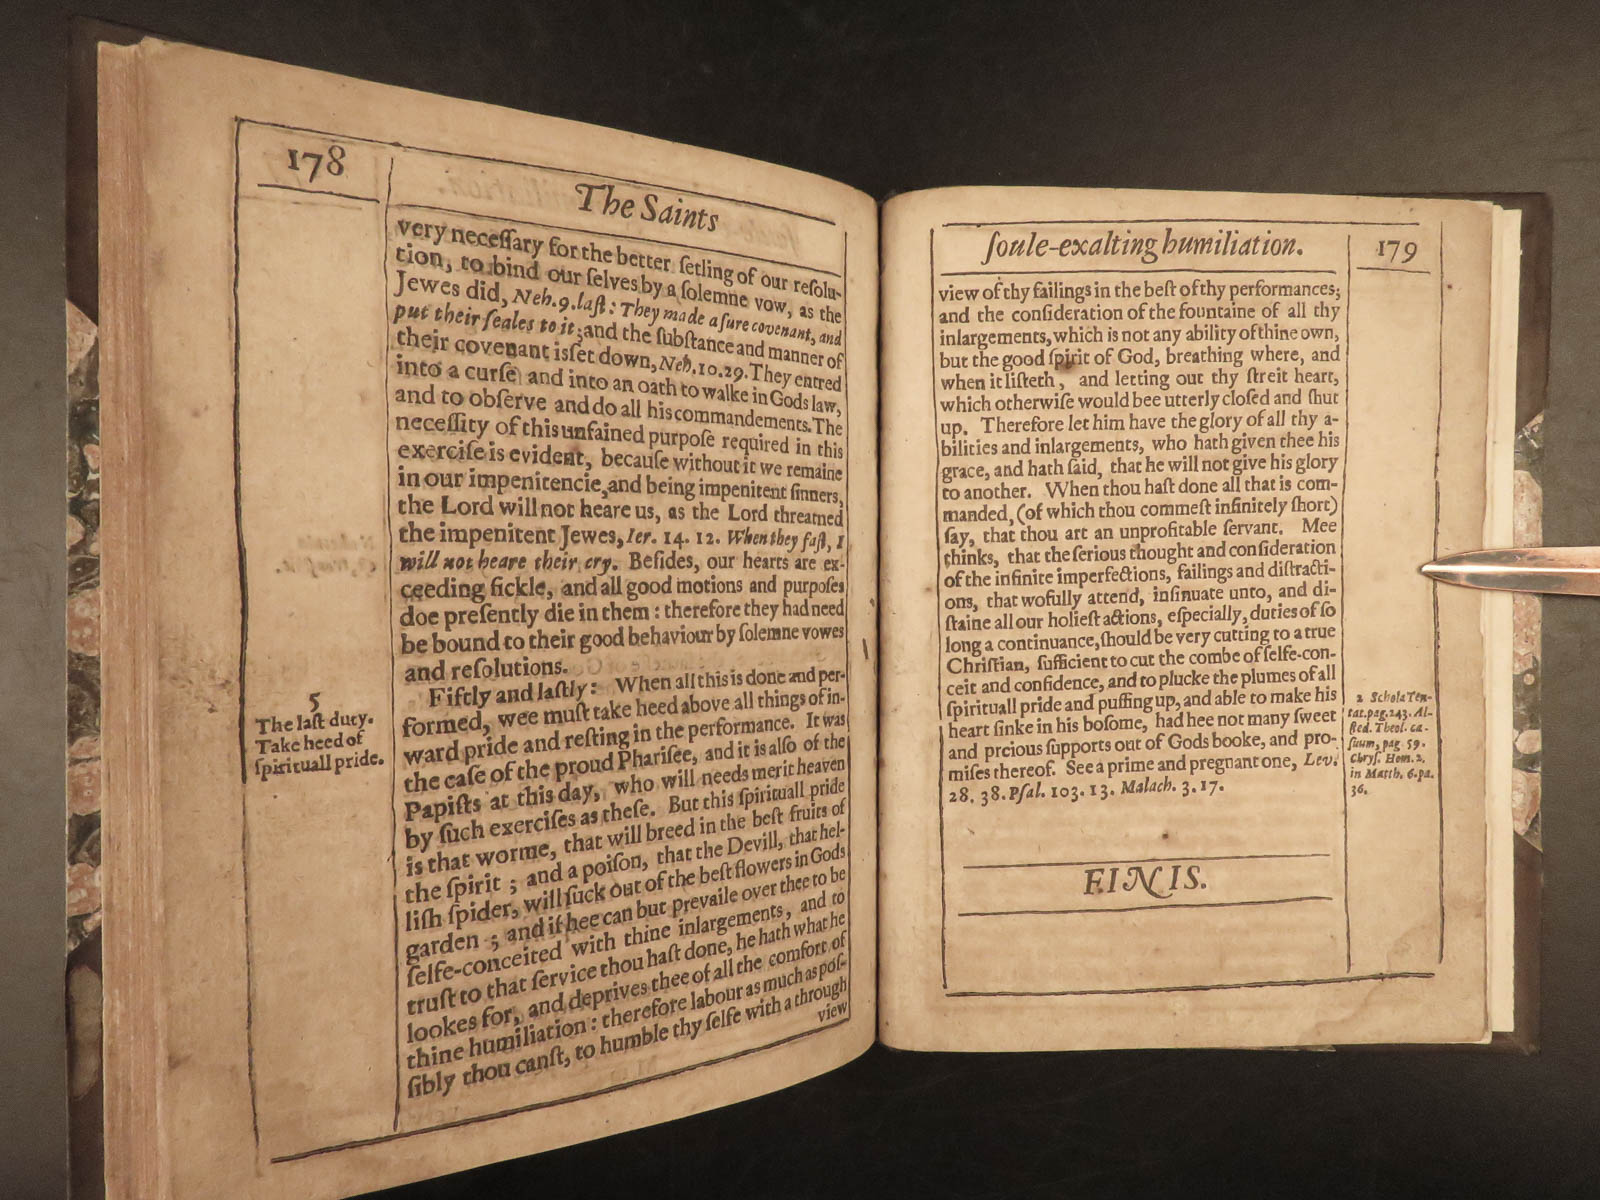 178
The Saints
very neceſſary for the better ſetling of our reſolu-
tion, to bind our ſelves by a ſolemne vow, as the
Jewes did, Neh. 9. laſt: They made a ſure covenant, and
put their ſeales to it; and the ſubſtance and manner of
their covenant is ſet down, Neh. 10. 29. They entred
into a curſe and into an oath to walke in Gods law,
and to obſerve and do all his commandements. The
neceſſity of this unfained purpoſe required in this
exerciſe is evident, becauſe without it we remaine
in our impenitencie, and being impenitent ſinners,
the Lord will not heare us, as the Lord threatned
the impenitent Jewes, Ier. 14. 12. When they faſt, I
will not heare their cry. Beſides, our hearts are ex-
ceeding fickle, and all good motions and purpoſes
doe preſently die in them : therefore they had need
be bound to their good behaviour by ſolemne vowes
and reſolutions.
5
The laſt duty.
Take heed of
ſpirituall pride.
Fiftly and laſtly: When all this is done and per-
formed, wee muſt take heed above all things of in-
ward pride and reſting in the performance. It was
the caſe of the proud Phariſee, and it is alſo of the
Papiſts at this day, who will needs merit heaven
by ſuch exerciſes as theſe. But this ſpirituall pride
is that worme, that will breed in the beſt fruits of
the ſpirit ; and a poiſon, that the Devill, that hel-
liſh ſpider, will ſuck out of the beſt flowers in Gods
garden ; and if hee can but prevaile over thee to be
ſelfe-conceited with thine inlargements, and to
truſt to that ſervice thou haſt done, he hath what he
lookes for, and deprives thee of all the comfort of
thine humiliation : therefore labour as much as poſ-
ſibly thou canſt, to humble thy ſelfe with a through
view
ſoule-exalting humiliation.
179
view of thy failings in the beſt of thy performances;
and the conſideration of the fountaine of all thy
inlargements, which is not any ability of thine own,
but the good ſpirit of God, breathing where, and
when it liſteth, and letting out thy ſtreit heart,
which otherwiſe would bee utterly cloſed and ſhut
up. Therefore let him have the glory of all thy a-
bilities and inlargements, who hath given thee his
grace, and hath ſaid, that he will not give his glory
to another. When thou haſt done all that is com-
manded, (of which thou commeſt infinitely ſhort)
ſay, that thou art an unprofitable ſervant. Mee
thinks, that the ſerious thought and conſideration
of the infinite imperfections, failings and diſtracti-
ons, that wofully attend, inſinuate unto, and di-
ſtaine all our holieſt actions, eſpecially, duties of ſo
long a continuance, ſhould be very cutting to a true
Chriſtian, ſufficient to cut the combe of ſelfe-con-
ceit and confidence, and to plucke the plumes of all
ſpirituall pride and puffing up, and able to make his
heart ſinke in his boſome, had hee not many ſweet
and prcious ſupports out of Gods booke, and pro-
miſes thereof. See a prime and pregnant one, Lev.
28. 38. Pſal. 103. 13. Malach. 3. 17.
2 Schola Ten-
tat. pag. 243. Al-
ſted. Theol. ca-
ſuum, pag 59.
Chryſ. Hom. 2.
in Matth. 6. pa.
36.
FINIS.